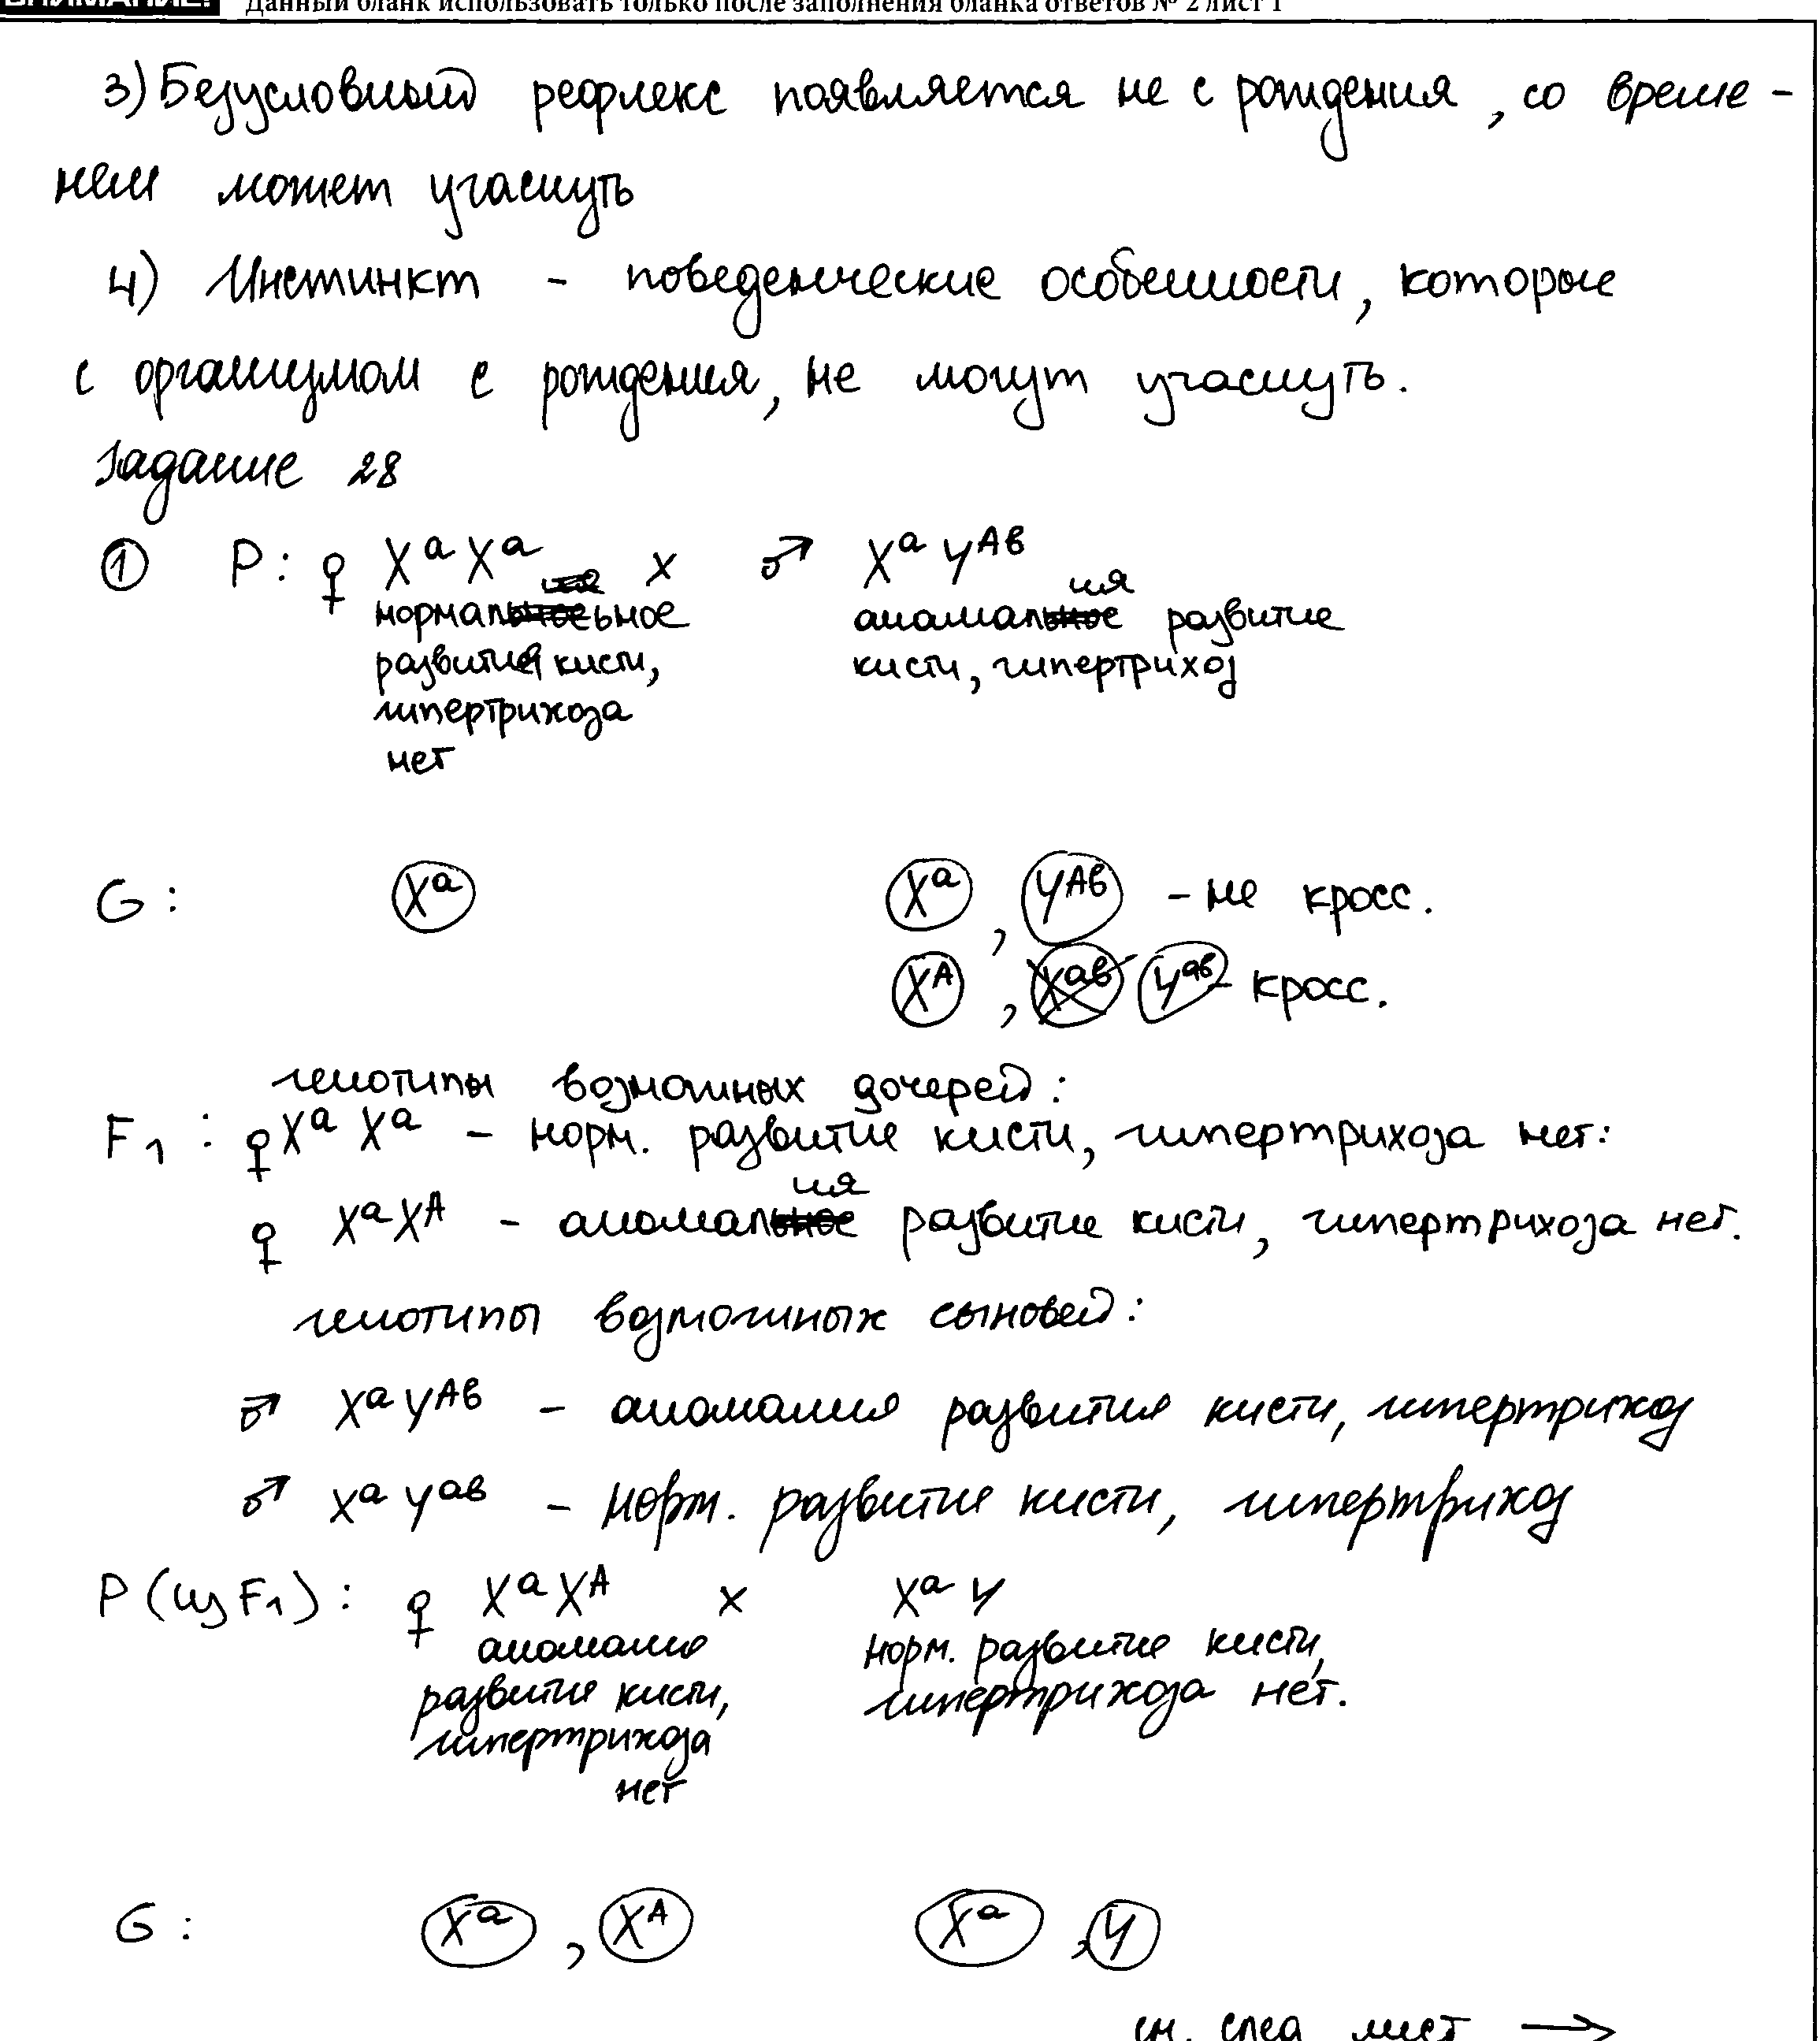 ВНИМАНИЕ! Данный бланк использовать только после заполнения бланка ответов № 2 лист 1
3) Безусловный рефлекс появляется не с рождения, со време-
нем может угаснуть
4) Инстинкт - поведенческие особенности, которые
с организмом с рождения, не могут угаснуть.
Задание 28
① P: ♀ XᵃXᵃ x ♂ XᵃYᴬᵇ
нормальное аномалия развитие
развитие кисти, кисти, гипертрихоз
гипертрихоза
нет
G: Xᵃ Xᵃ, Yᴬᵇ - не кросс.
Xᴬ, Yᵃᵇ - кросс.
генотипы возможных дочерей:
F₁: ♀ Xᵃ Xᵃ - норм. развитие кисти, гипертрихоза нет:
♀ XᵃXᴬ - аномалия развитие кисти, гипертрихоза нет.
генотипы возможных сыновей:
♂ XᵃYᴬᵇ - аномалия развития кисти, гипертрихоз
♂ XᵃYᵃᵇ - норм. развитие кисти, гипертрихоз
P (из F₁): ♀ XᵃXᴬ x XᵃY
аномалия норм. развитие кисти,
развития кисти, гипертрихоза нет.
гипертрихоза
нет
G: Xᵃ, Xᴬ Xᵃ, Y
см. след лист →